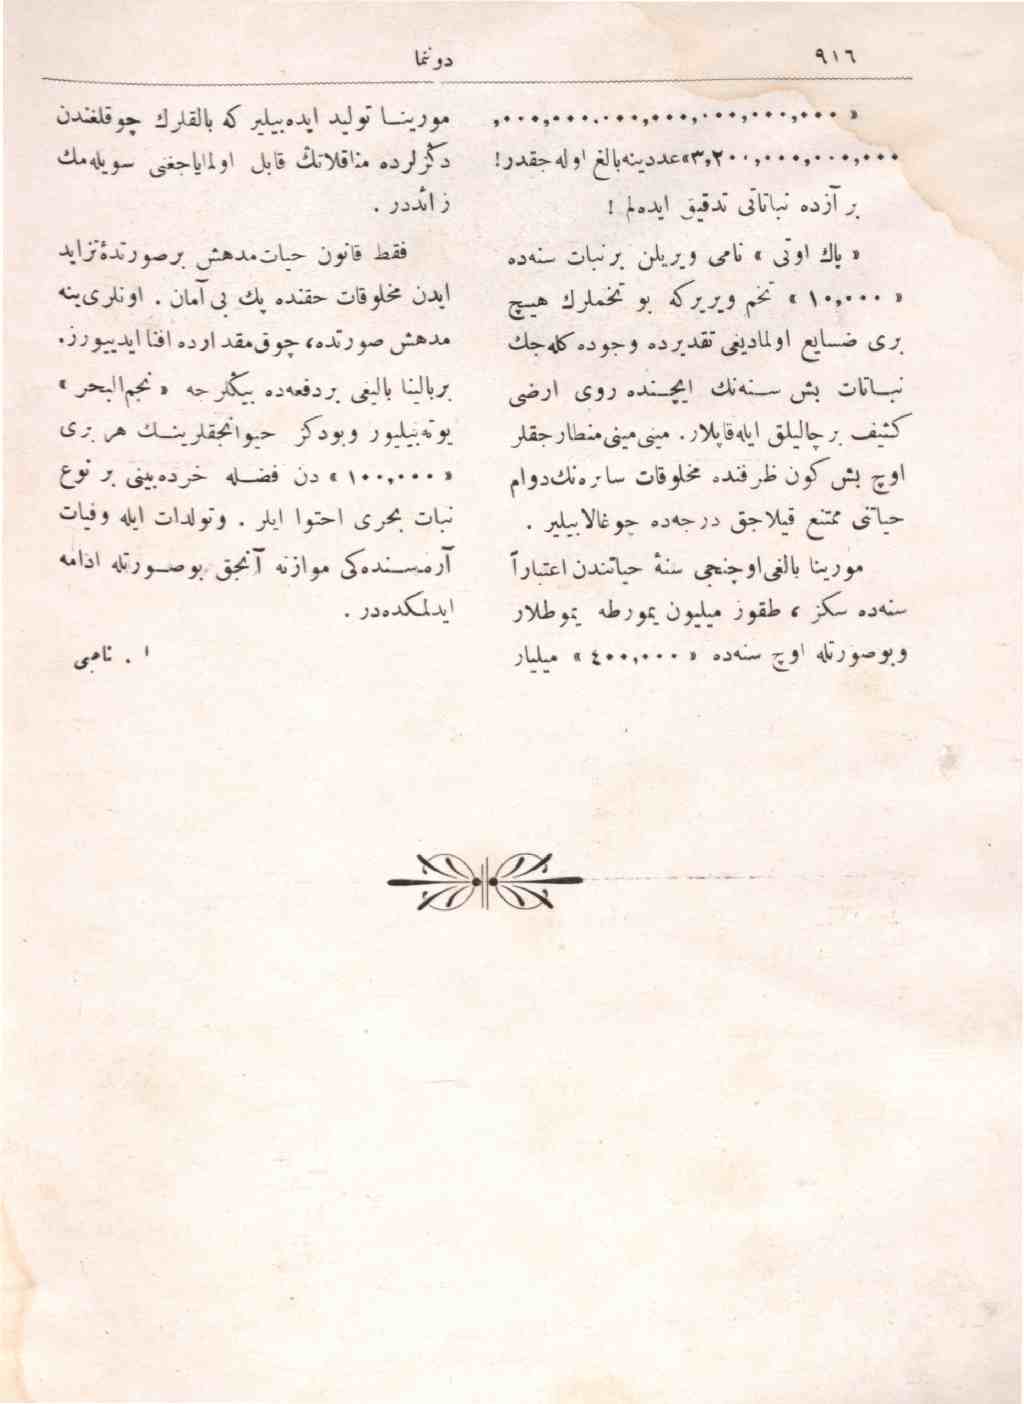 ٩١٦
دونما
« ٠٠٠,٠٠٠,٠٠٠,٠٠٠,٠٠٠,٠٠٠,٠٠٠,
٣,٢٠٠,٠٠٠,٠٠٠,٠٠٠» عددینه بالغ اوله جقدر!
بر آزده نباتاتی تدقیق ایده‌لم !
« پاك اوتی » نامی ویریلن بر نبات سنه‌ده
« ١٠,٠٠٠ » تخم ویریرکه بو تخملرك هیچ
بری ضایع اولمادیغی تقدیرده وجوده کله‌جك
نباتات بش سنه‌نك ایچنده روی ارضی
کثیف بر چالیلق ایله قاپلار. مینی مینی منطار جقلر
اوچ بش کون ظرفنده مخلوقات سائره‌نك دوام
حیاتنی ممتنع قیلاجق درجه‌ده چوغالابیلیر .
مورینا بالغی اوچنجی سنهٔ حیاتندن اعتباراً
سنه‌ده سکز ، طقوز میلیون یمورطه یموطلار
وبوصورتله اوچ سنه‌ده « ٤٠٠,٠٠٠ » میلیار
مورینا تولید ایده‌بیلیر که بالقلرك چوقلغندن
دکزلرده مناقلاتك قابل اولمایاجغنی سویله‌مك
زائددر .
فقط قانون حیات مدهش بر صورتده تزاید
ایدن مخلوقات حقنده پك بی آمان . اونلری ینه
مدهش صورتده، چوق مقدارده افنا ایدییورز.
بر بالینا بالیغی بر دفعه‌ده بیکلرجه « نجم‌البحر »
یوته‌بیلیور وبودکز حیوانجقلرینك هر بری
« ١٠٠,٠٠٠ » دن فضله خرده‌بینی بر نوع
نبات بحری احتوا ایلر . وتولدات ایله وفیات
آره‌سنده‌کی موازنه آنجق بوصورتله ادامه
ایدلمکده‌در .
ا . ناجی